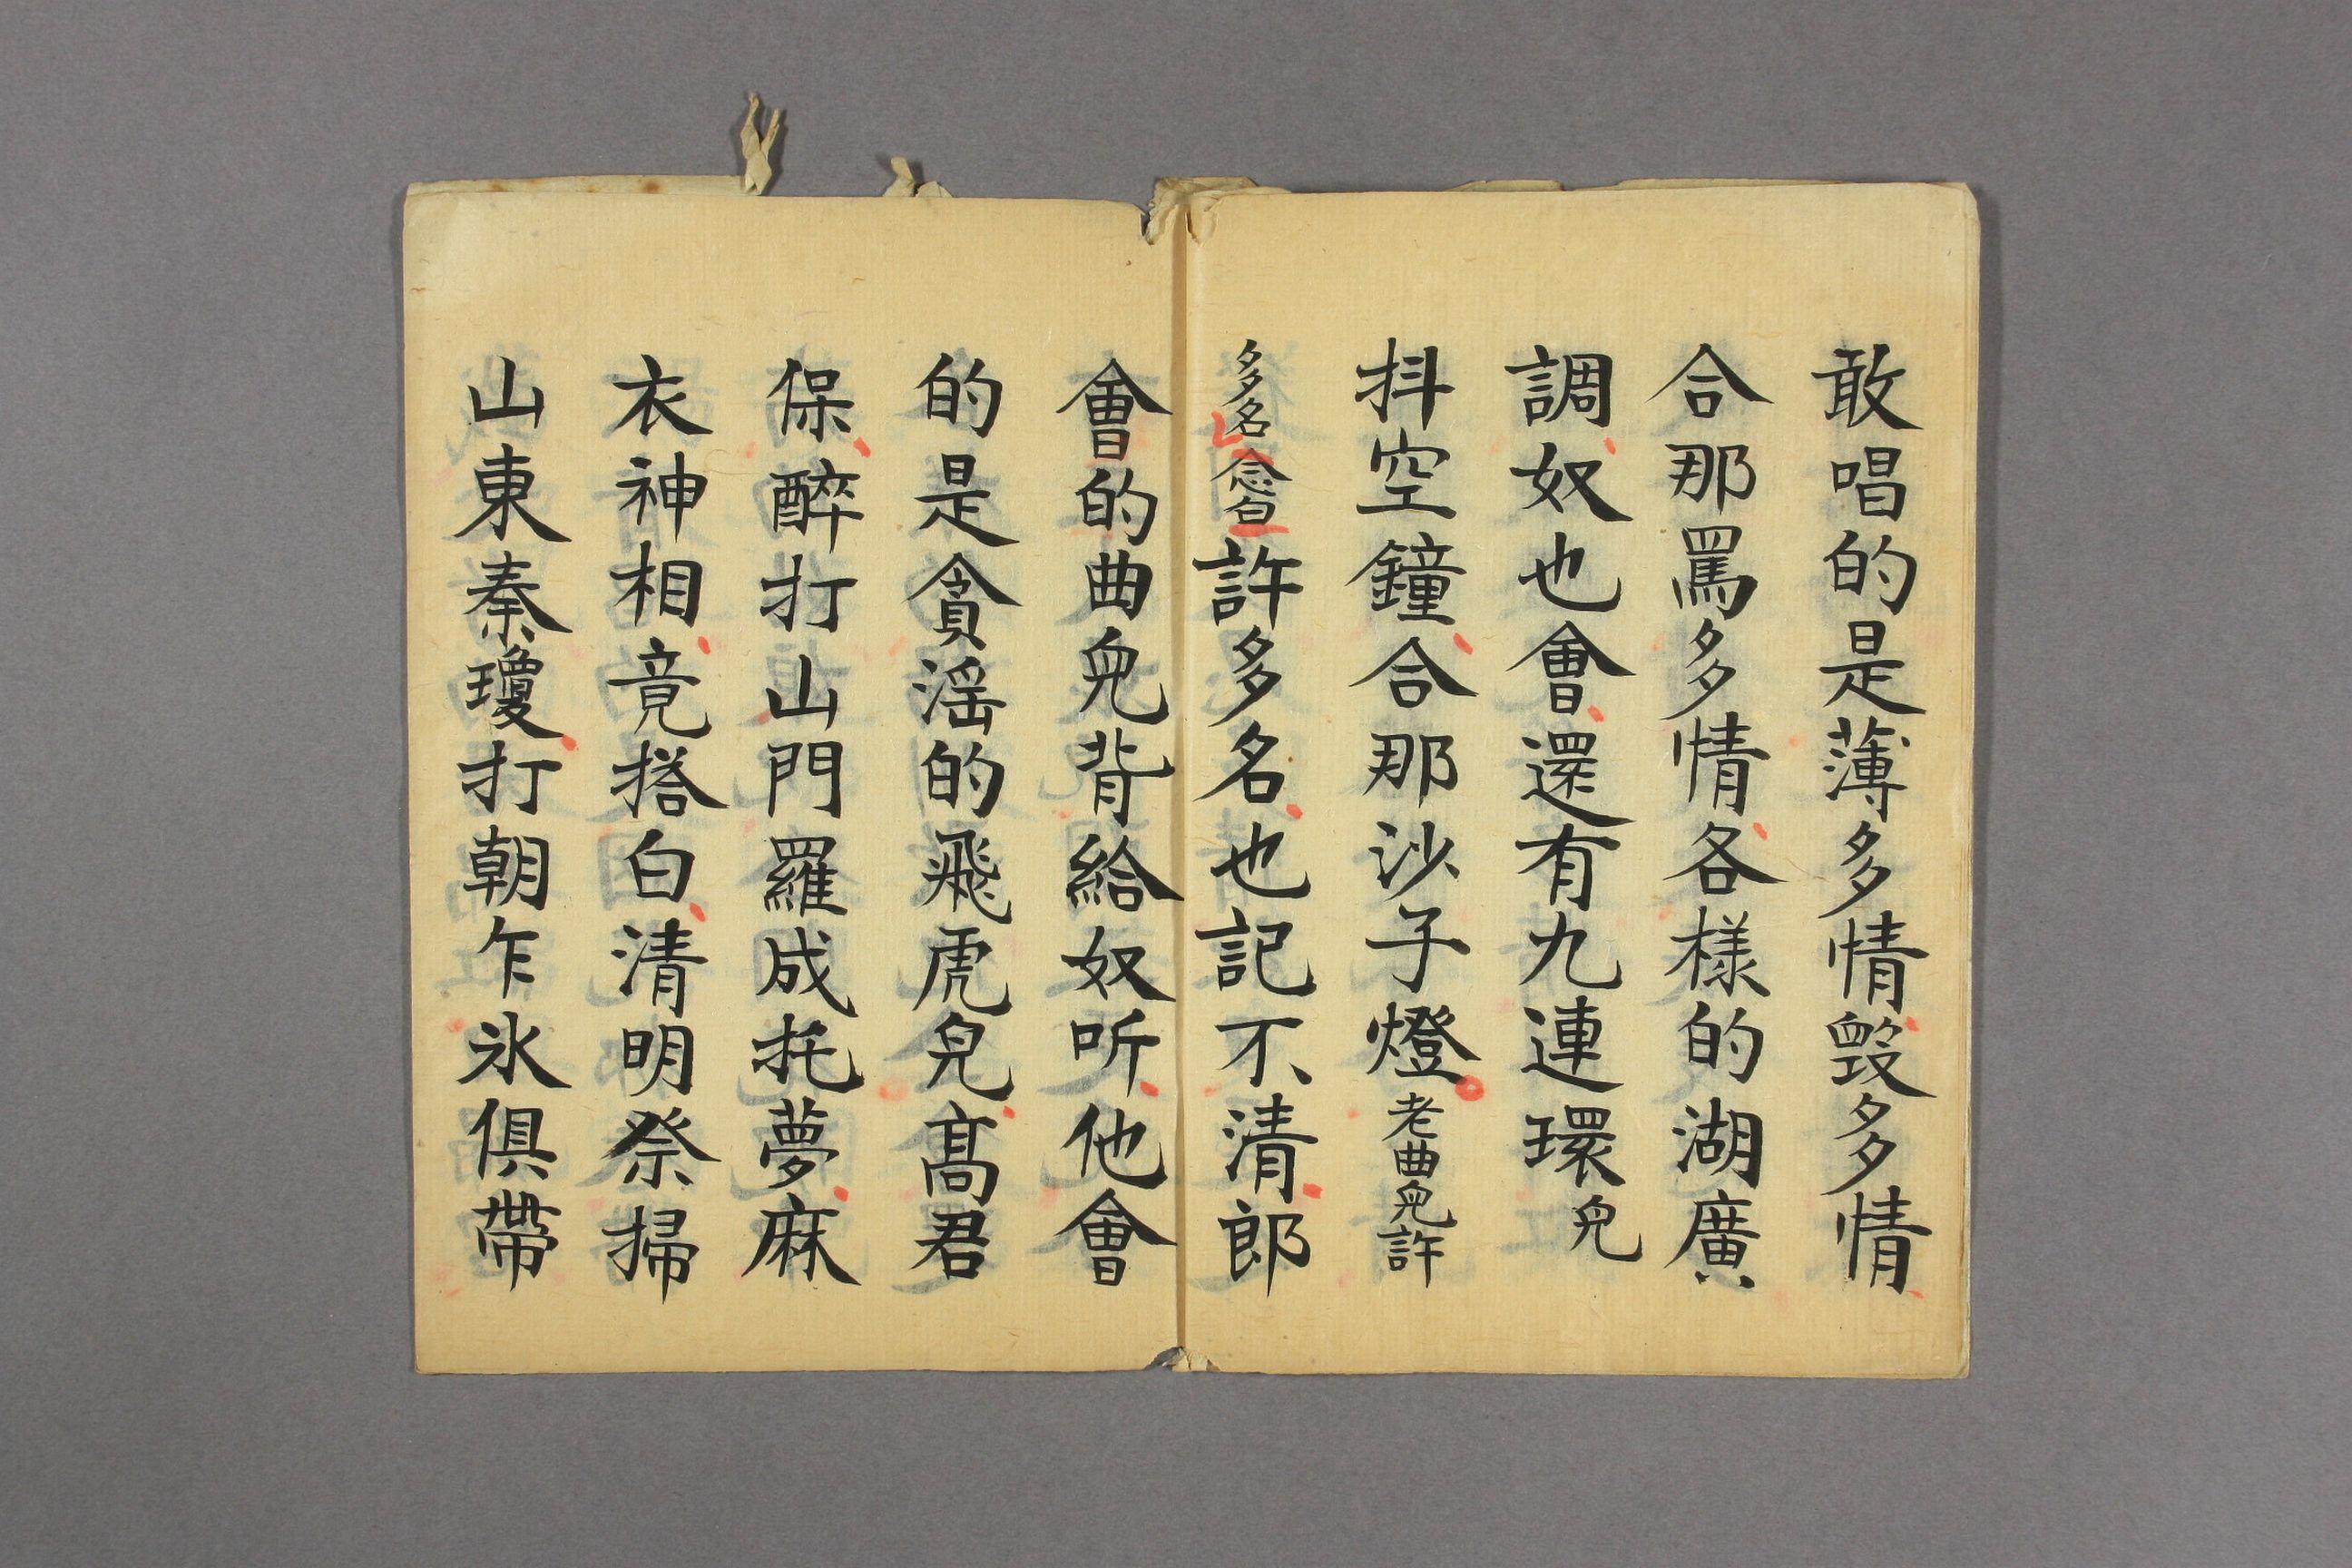 敢唱的是薄多情毀多情
合那罵多情各樣的湖廣
調奴也會還有九連環兒
抖空鐘合那沙子燈老曲兒許
多名念白許多名也記不清郎
會的曲兒背給奴听他會
的是貪滛的飛虎兒髙君
保醉打山門羅成托夢麻
衣神相竟搭白清明祭掃
山東秦瓊打朝乍氷俱帶